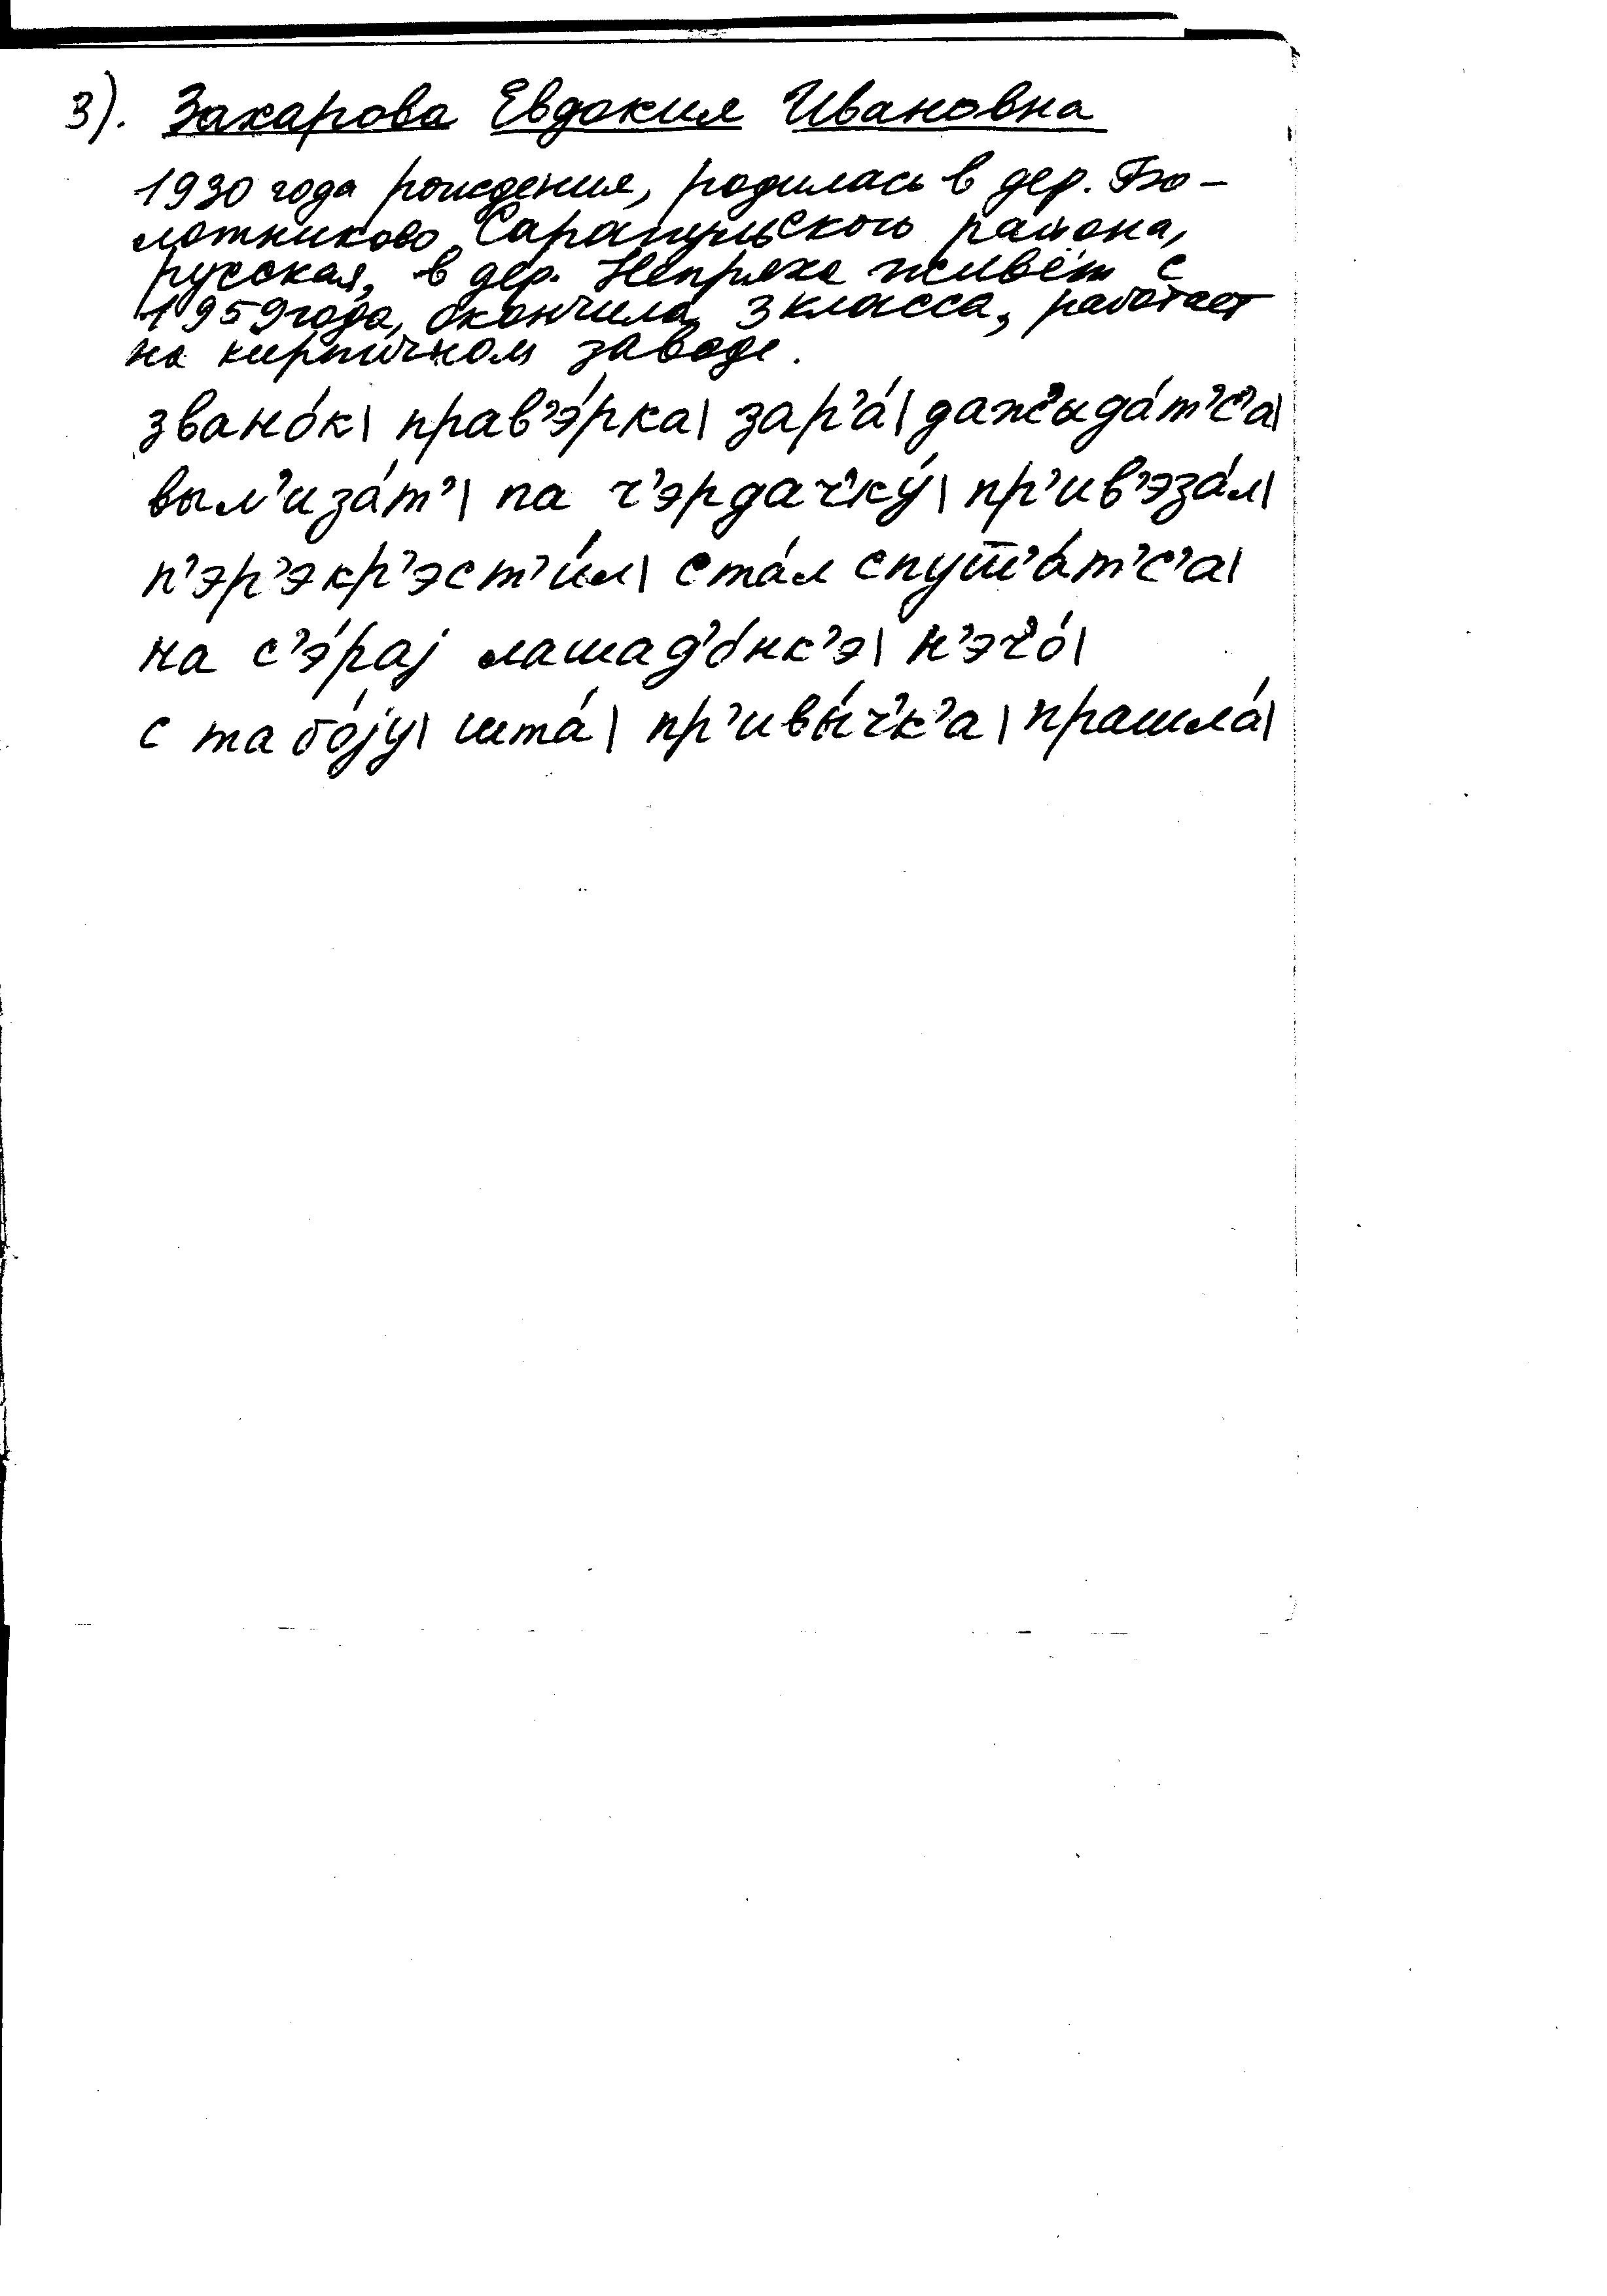 3). Захарова Евдокия Ивановна
1930 года рождения, родилась в дер. Бо-
лотниково Сарапульского района,
русская, в дер. Непряха живёт с
1959 года, окончила 3 класса, работает
на кирпичном заводе.
звано́к| прав’э́рка| зар’а́| даж’ыда́т’с’а|
вым’иза́т’| па ч’эрдач’ку́| пр’ив’эза́л|
п’эр’экр’эст’и́л| ста́л спуш̅’а́т’с’а|
на с’э́рај лашад’о́нк’э| н’эч’о́|
с табо́jу| шта́| пр’ивы́ч’к’а| прашла́|